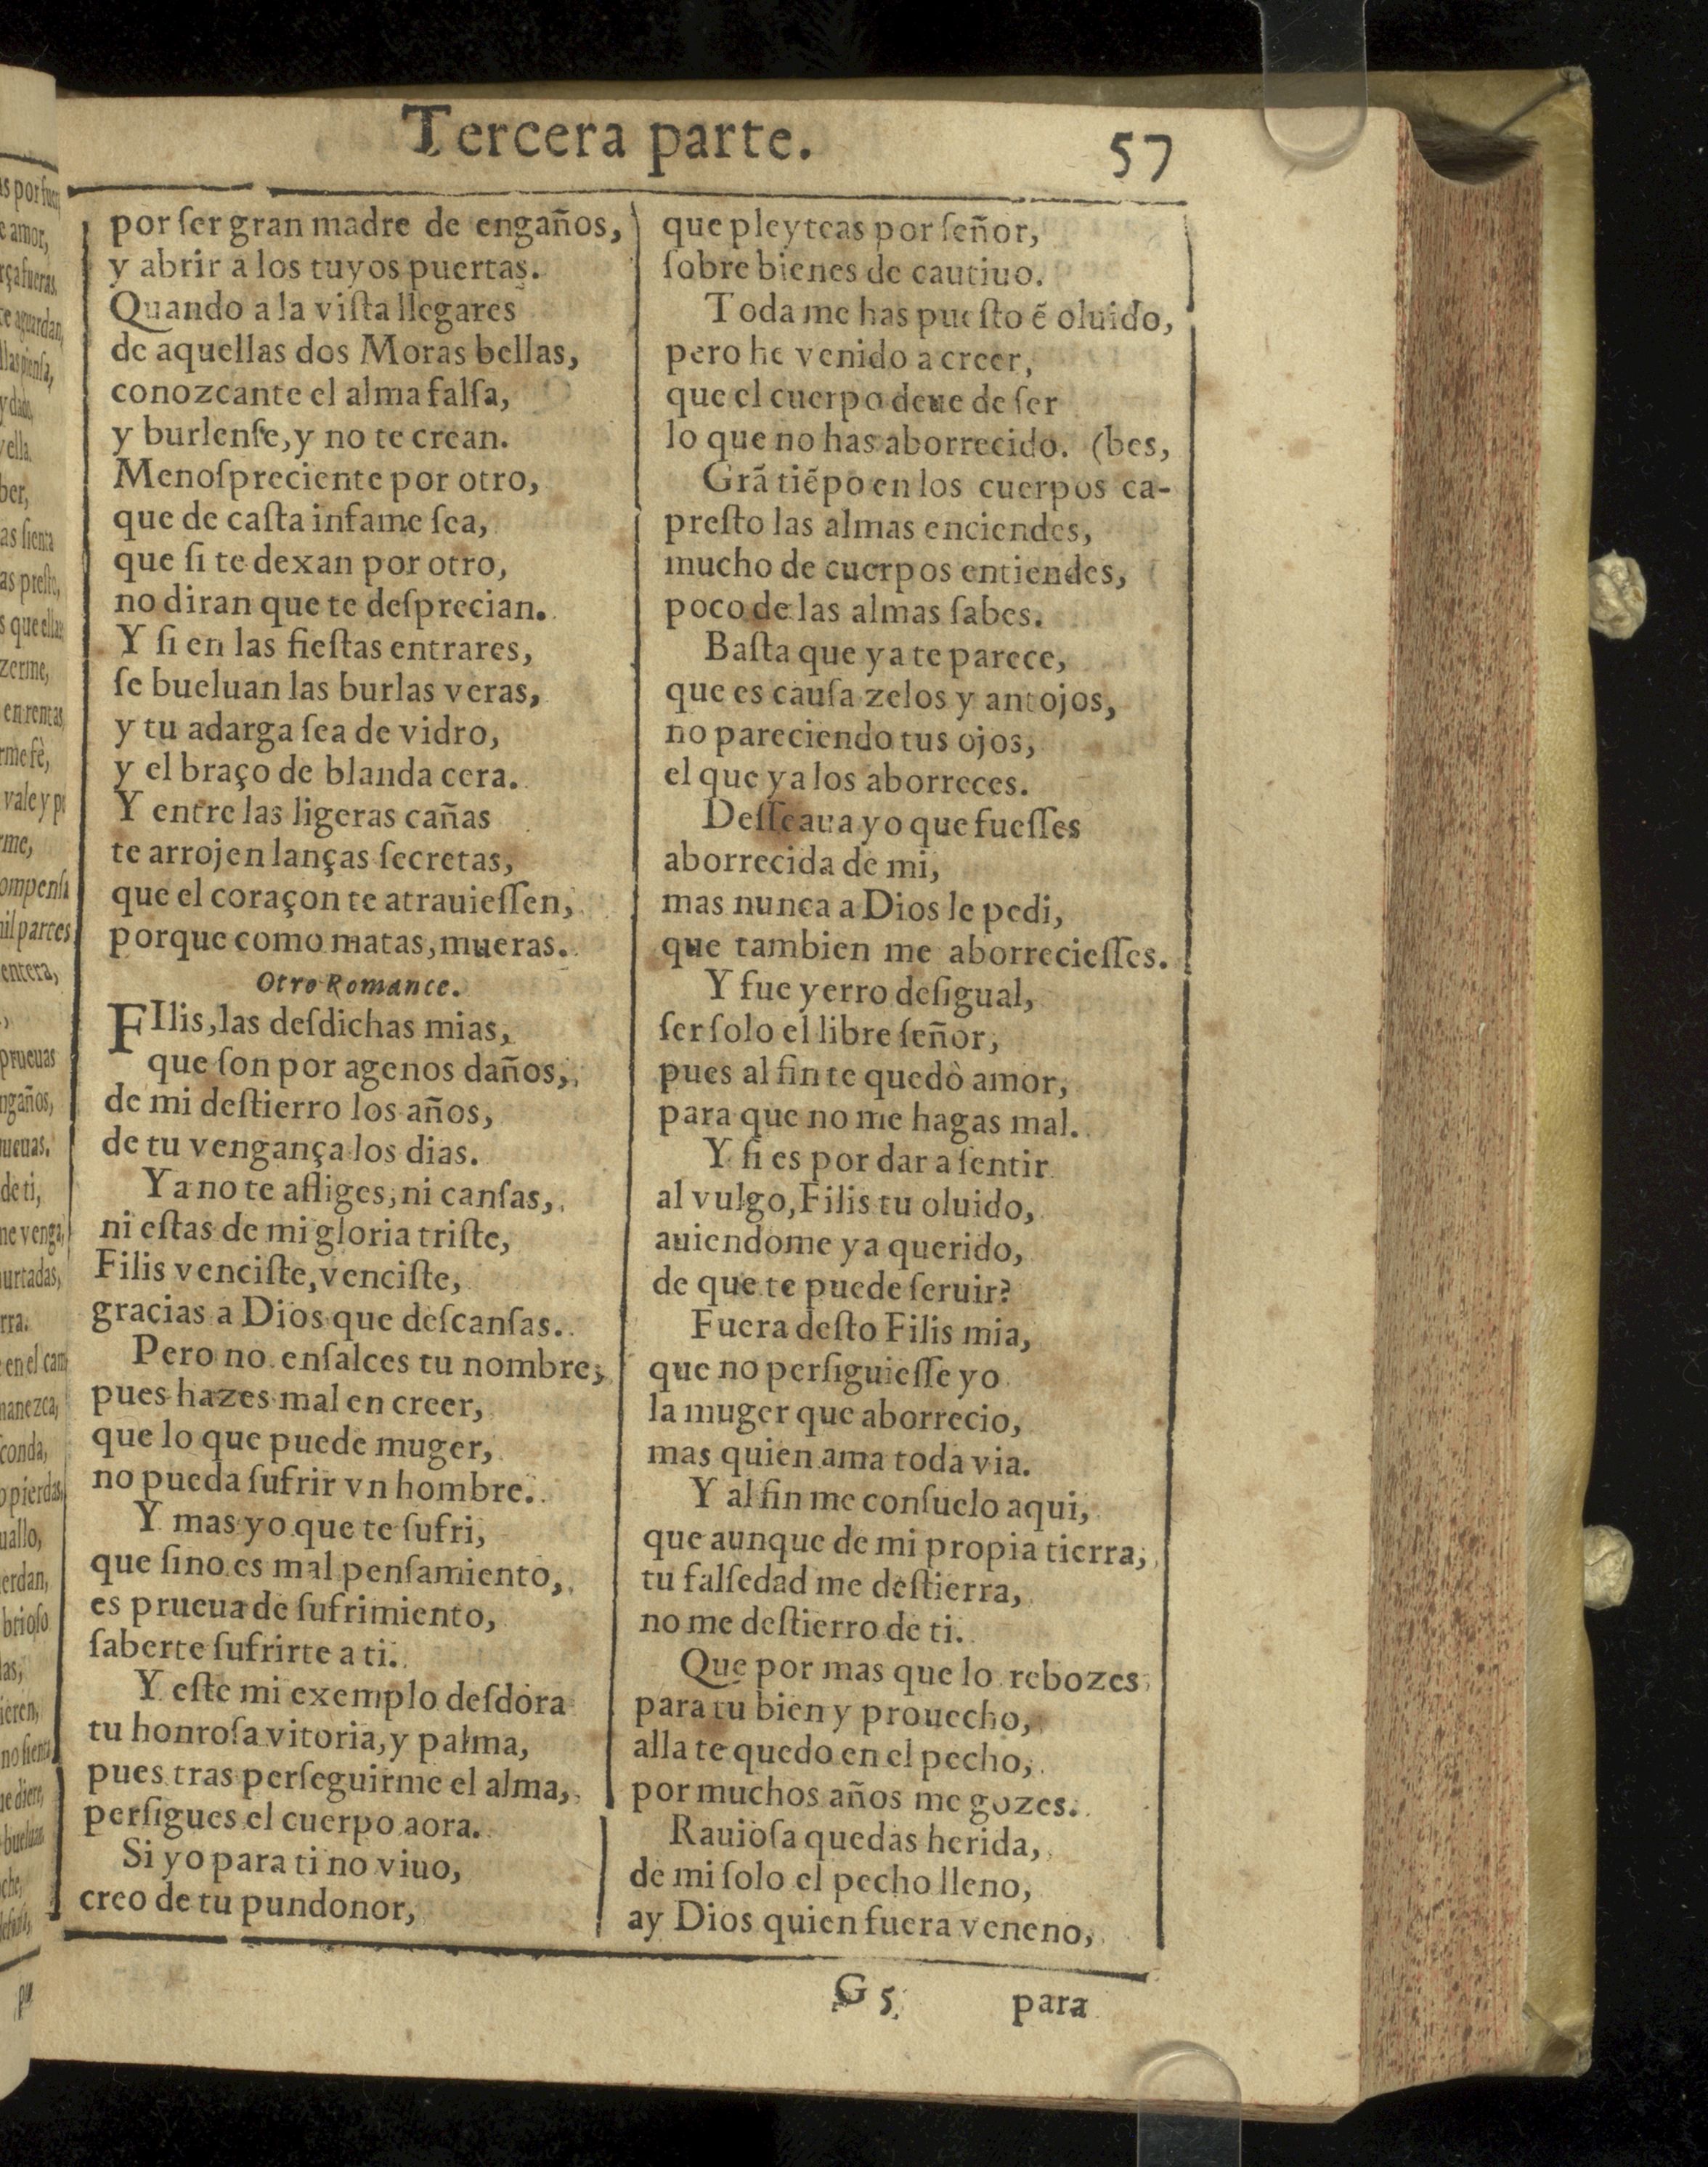 Tercera parte. 57
por ſer gran madre de engaños,
y abrir a los tuyos puertas.
Quando a la viſta llegares
de aquellas dos Moras bellas,
conozcante el alma falſa,
y burlenſe, y no te crean.
Menoſpreciente por otro,
que de caſta infame ſea,
que ſi te dexan por otro,
no diran que te deſprecian.
Y ſi en las fieſtas entrares,
ſe bueluan las burlas veras,
y tu adarga ſea de vidro,
y el braço de blanda cera.
Y entre las ligeras cañas
te arrojen lanças ſecretas,
que el coraçon te atrauieſſen,
porque como matas, mueras.
Otro Romance.
FIlis, las deſdichas mias,
que ſon por agenos daños,
de mi deſtierro los años,
de tu vengança los dias.
Ya no te afliges, ni canſas,
ni eſtas de mi gloria triſte,
Filis venciſte, venciſte,
gracias a Dios que deſcanſas.
Pero no enſalces tu nombre,
pues hazes mal en creer,
que lo que puede muger,
no pueda ſufrir vn hombre.
Y mas yo que te ſufri,
que ſino es mal penſamiento,
es prueua de ſufrimiento,
ſaberte ſufrirte a ti.
Y eſte mi exemplo deſdora
tu honroſa vitoria, y palma,
pues tras perſeguirme el alma,
perſigues el cuerpo aora.
Si yo para ti no viuo,
creo de tu pundonor,
que pleyteas por ſeñor,
ſobre bienes de cautiuo.
Toda me has pueſto ẽ oluido,
pero he venido a creer,
que el cuerpo deue de ſer
lo que no has aborrecido. (bes,
Grã tiẽpo en los cuerpos ca-
preſto las almas enciendes,
mucho de cuerpos entiendes,
poco de las almas ſabes.
Baſta que ya te parece,
que es cauſa zelos y antojos,
no pareciendo tus ojos,
el que ya los aborreces.
Deſſeaua yo que fueſſes
aborrecida de mi,
mas nunca a Dios le pedi,
que tambien me aborrecieſſes.
Y fue yerro deſigual,
ſer ſolo el libre ſeñor,
pues al fin te quedò amor,
para que no me hagas mal.
Y ſi es por dar a ſentir
al vulgo, Filis tu oluido,
auiendome ya querido,
de que te puede ſeruir?
Fuera deſto Filis mia,
que no perſiguieſſe yo
la muger que aborrecio,
mas quien ama toda via.
Y al fin me conſuelo aqui,
que aunque de mi propia tierra,
tu falſedad me deſtierra,
no me deſtierro de ti.
Que por mas que lo rebozes
para tu bien y prouecho,
alla te quedo en el pecho,
por muchos años me gozes.
Rauioſa quedas herida,
de mi ſolo el pecho lleno,
ay Dios quien fuera veneno,
G 5 para